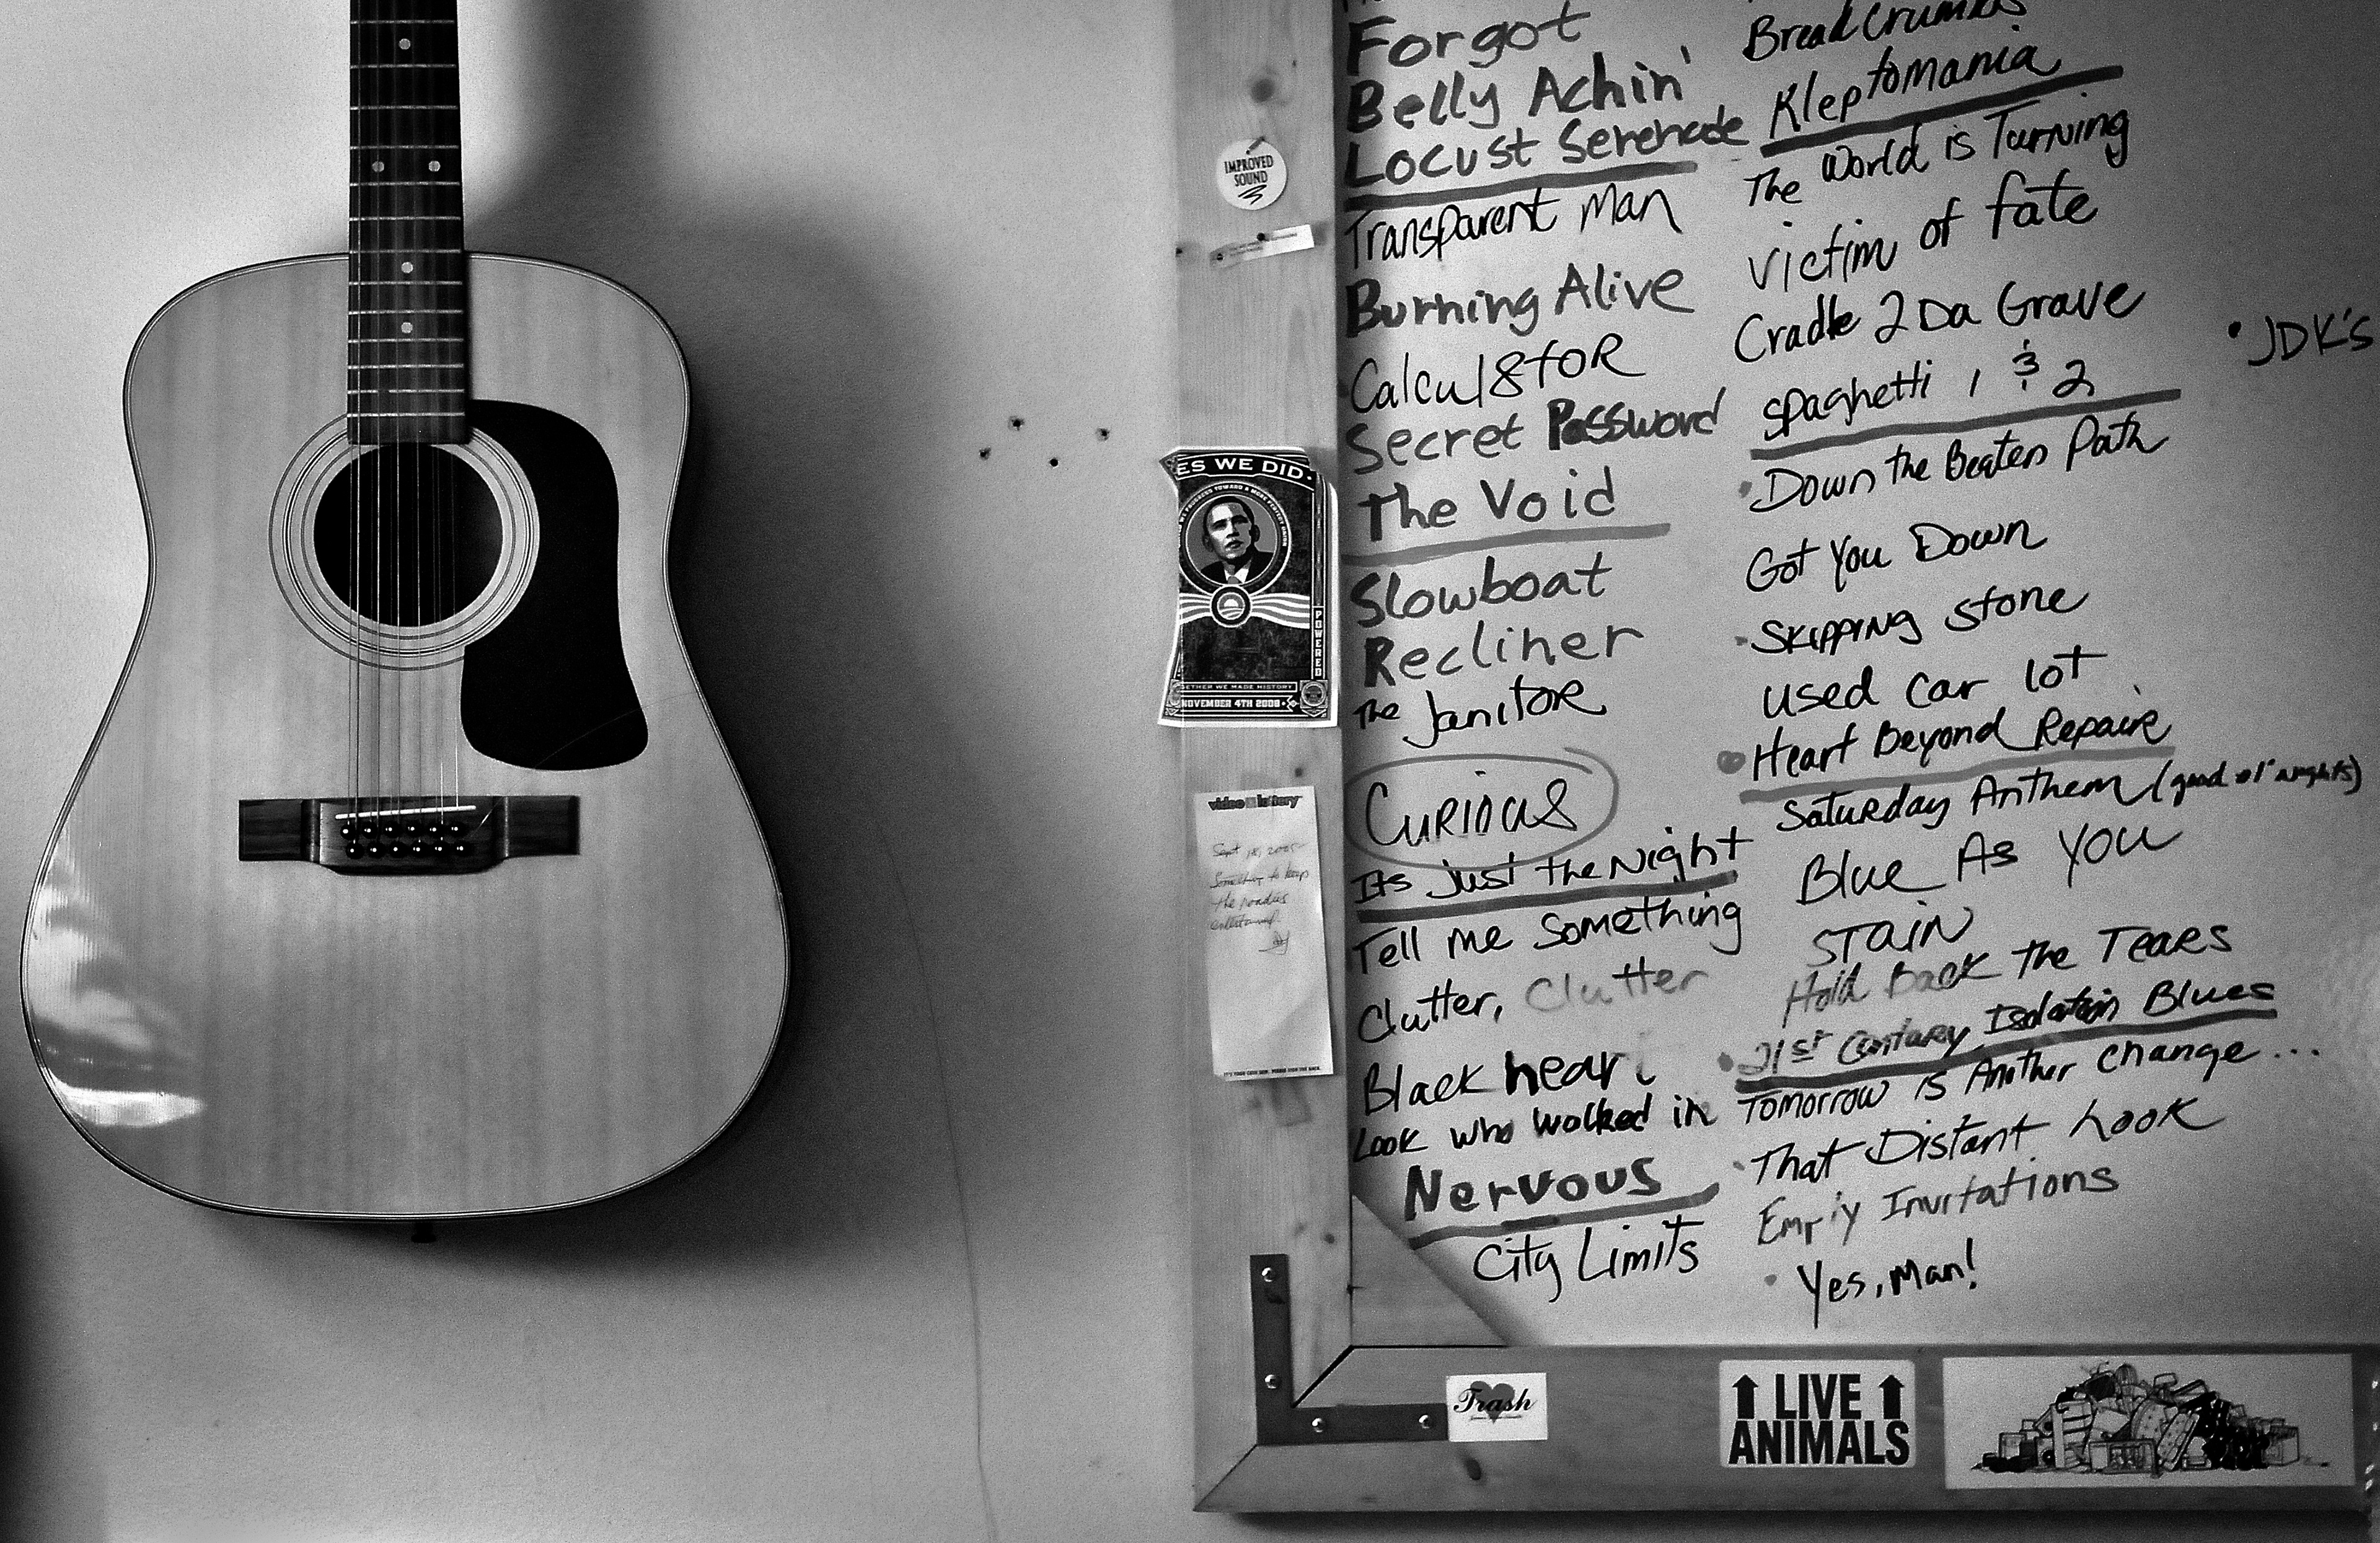 Forgot
Belly Achin'
Locust Serenade
Transparent Man
Burning Alive
Calcul8toR
Secret Password
The Void
Slowboat
Recliner
The JanitoR
CuRious
Its Just the Night
Tell me Something
Clutter, Clutter
Black heart
Look who walked in
Nervous
City Limits
BreadCrumbs
Kleptomania
The World is Turning
Victim of fate
Cradle 2 Da Grave
Spaghetti 1 & 2
Down the Beaten Path
Got You Down
Skipping Stone
Used Car Lot
Heart Beyond Repaire
Saturday Anthem (good ol' nights)
Blue As You
STAIN
Hold Back the Tears
21st Century Isolation Blues
Tomorrow is Another Change...
That Distant Look
Empty Invitations
Yes, Man!
JDK's
IMPROVED
SOUND
ES WE DID.
POWERED
GETHER WE MADE HISTORY
NOVEMBER 4TH 2008
video lottery
Something to keep
the roadies
entertained
Trash
LIVE
ANIMALS